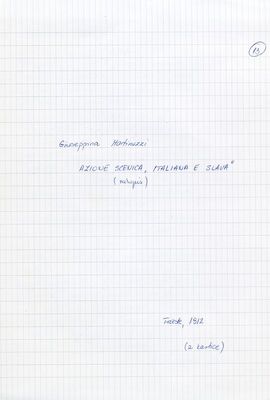 13
Giuseppina Martinuzzi
AZIONE SCENICA, ITALIANA E SLAVA"
(rukopis)
Trieste, 1912
(2 kartice)